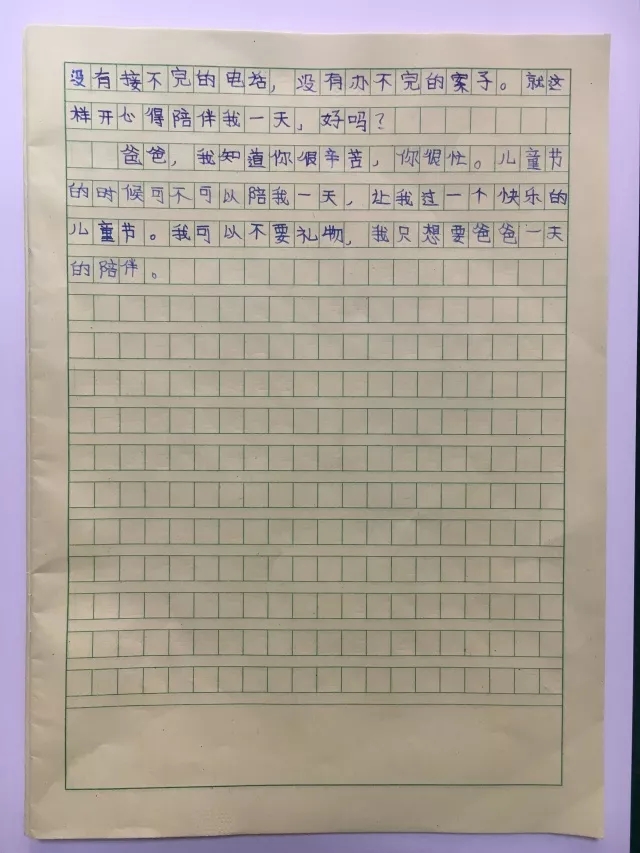 没有接不完的电话，没有办不完的案子。就这
样开心得陪伴我一天，好吗？
爸爸，我知道你很辛苦，你很忙。儿童节
的时候可不可以陪我一天，让我过一个快乐的
儿童节。我可以不要礼物，我只想要爸爸一天
的陪伴。